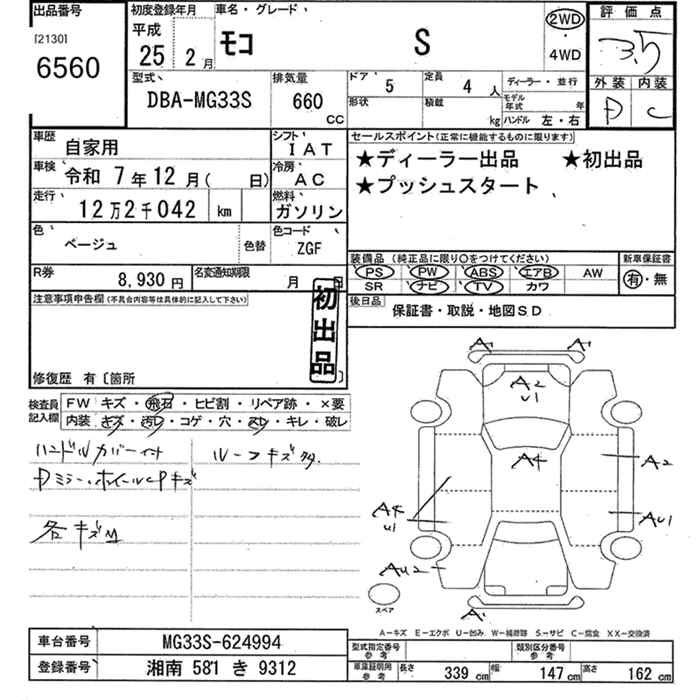 出品番号
[2130]
6560
初度登録年月
平成
25年 2月
車名・グレード
ﾓｺ S
2WD
・
4WD
評価点
3.5
外装 内装
D C
型式
DBA-MG33S
排気量
660
CC
ドア
5
定員
4人
形状
積載
kg
ディーラー・並行
モデル年式 年
ハンドル 左・右
車歴
自家用
シフト
IAT
車検
令和 7年12月( 日)
冷房
AC
走行
12万2千042 km
燃料
ガソリン
色
ベージュ
色替
色コード
ZGF
R券
8,930円
名変通知期限
月 日
セールスポイント(正常に機能するものに限ります)
★ディーラー出品 ★初出品
★プッシュスタート
装備品 (純正品に限り○をつけてください)
PS PW ABS エアB AW
SR ナビ TV カワ
新車保証書
有・無
後日品
保証書・取説・地図SD
注意事項申告欄(不具合内容等は具体的に記入して下さい)
初出品
修復歴 有〔箇所 〕
検査員記入欄
FW キズ・飛石・ヒビ割・リペア跡・×要
内装 キズ・汚レ・コゲ・穴・スレ・キレ・破レ
ハンドルカバー付
ルーフキズ
Dミラー、ホイールCPキズ
各キズM
A
A
A2
U1
A4
A2
A4
U1
AU1
AU2
A
スペア
A-キズ E-エクボ U-凹み W-補修跡 S-サビ C-腐食 XX-交換済
車台番号
MG33S-624994
登録番号
湘南 581 き 9312
型式指定番号
参考
類別区分番号
参考
車庫証明用
参考
長さ 339cm 幅 147cm 高さ 162cm